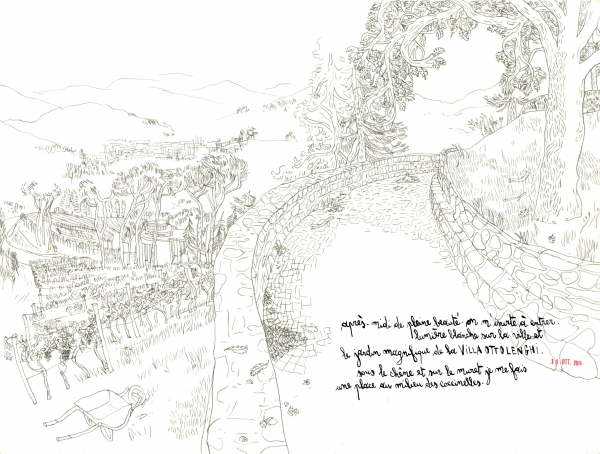 après-midi de pleine beauté on m'invite à entrer.
lumière blanche sur la ville et
le jardin magnifique de la VILLA OTTOLENGHI.
sous le chêne et sur le muret je me fais
une place au milieu des coccinelles.
OCT. 2014